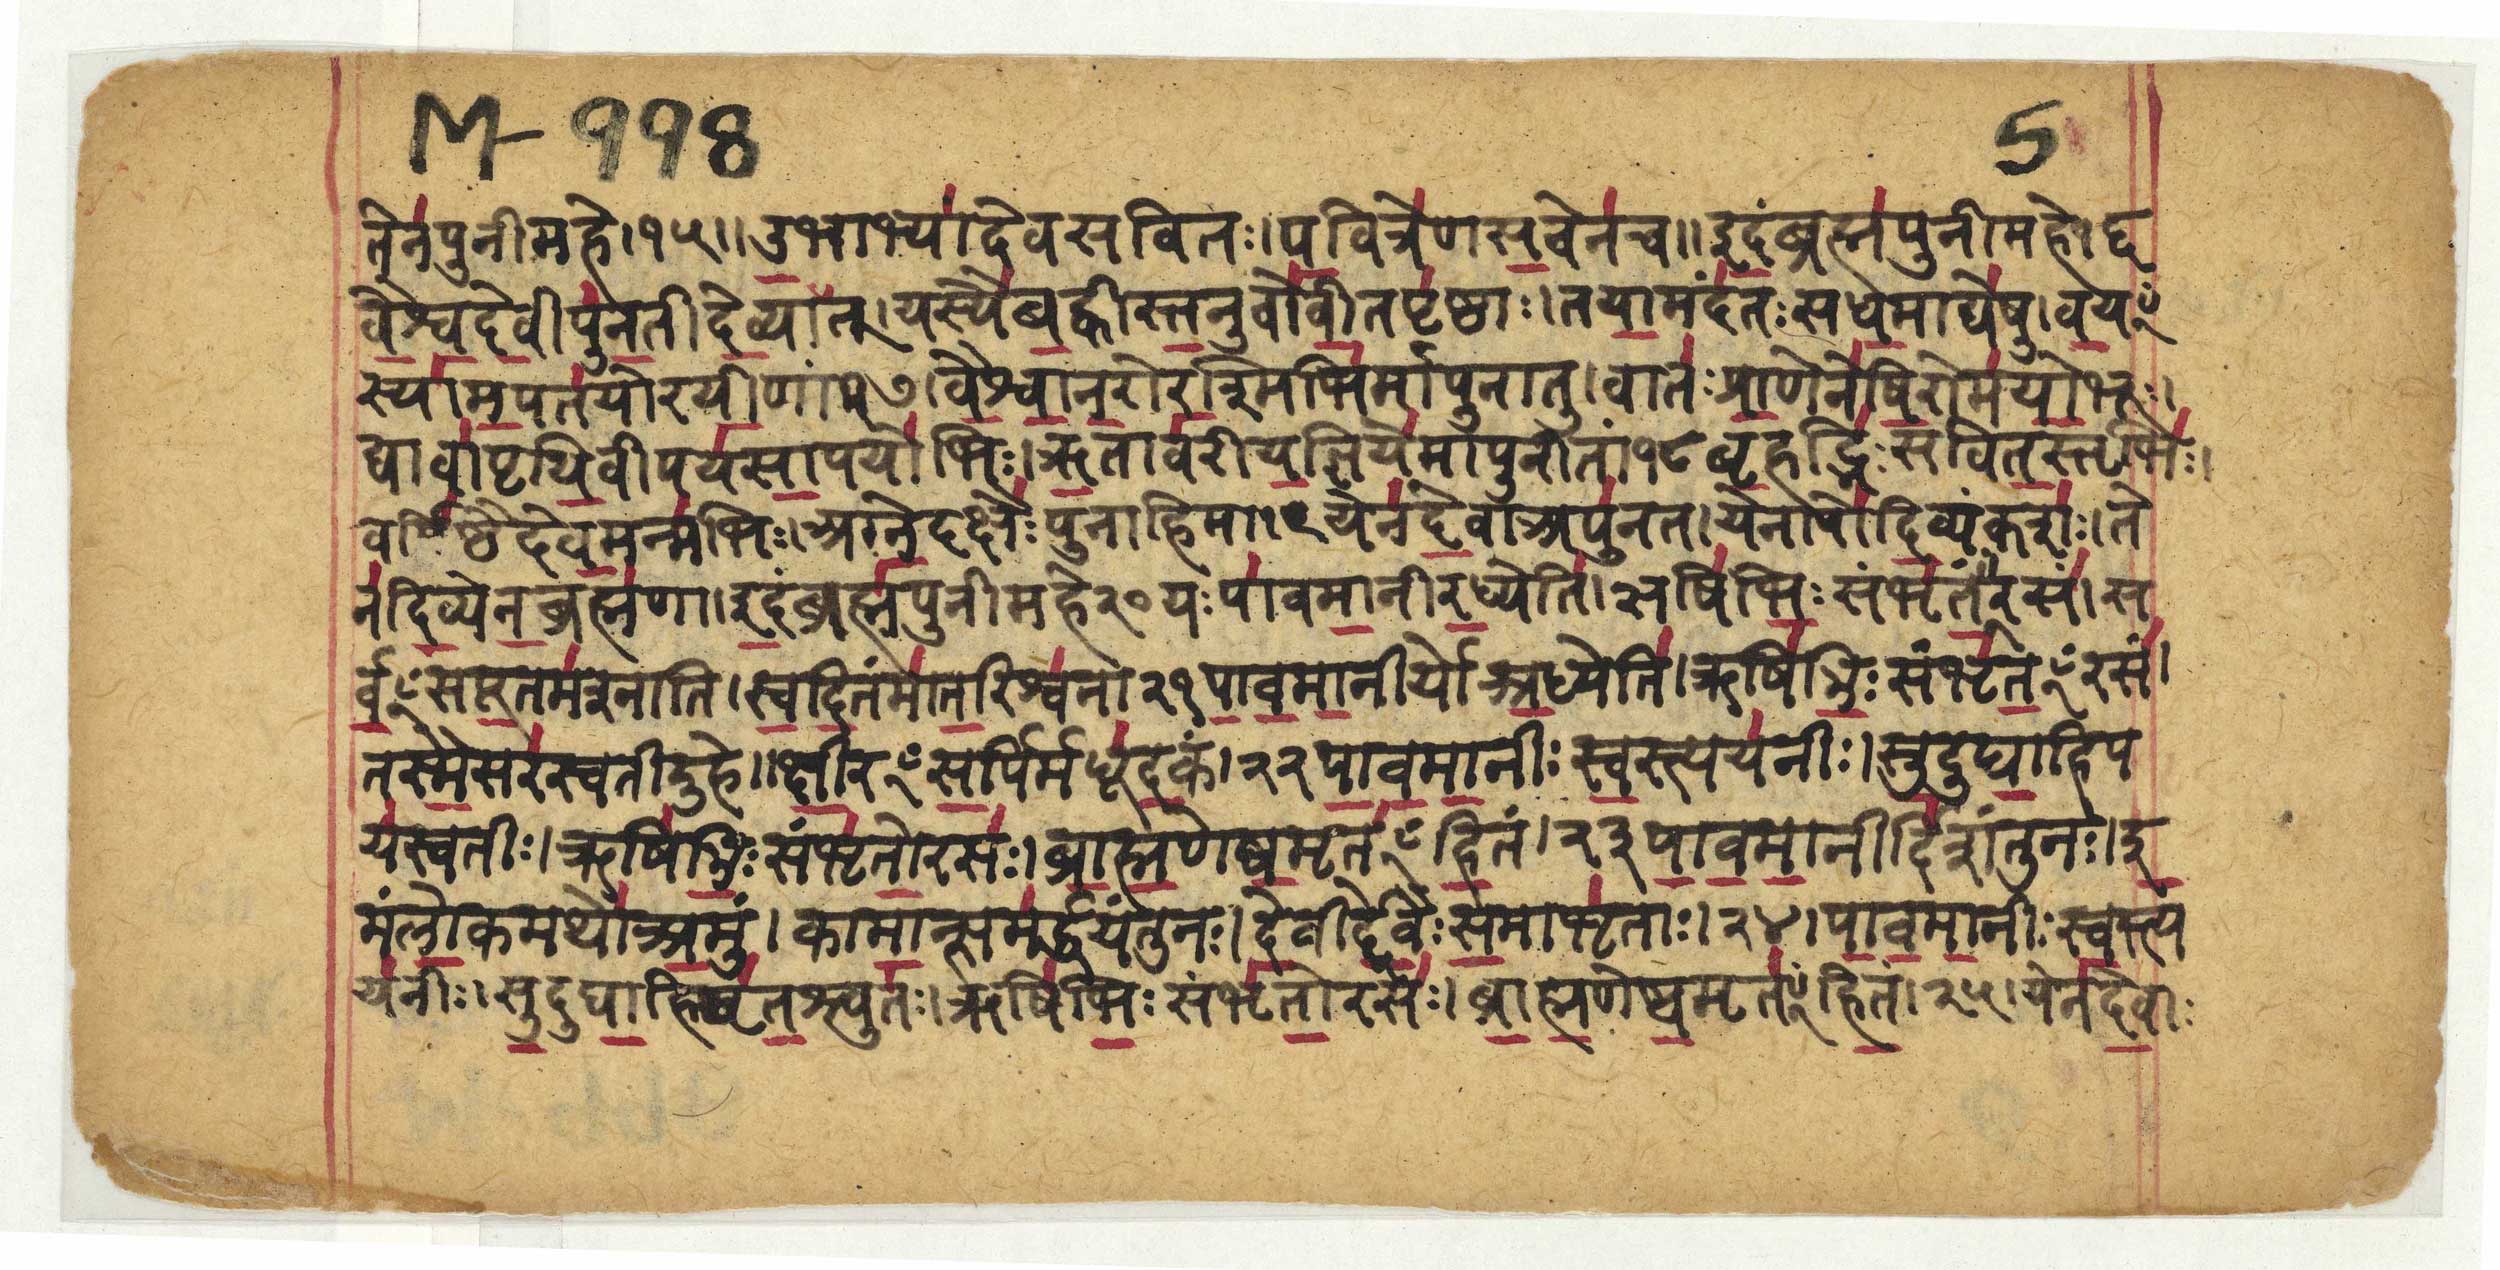 M-998 5
तेनपुनीमहे।१५।।उभाभ्यांदेवसवितः।पवित्रेणसवेनच॥इदंब्रह्मपुनीमहे१६
वैश्वदेवीपुनतीदेव्यागात्।यस्यैबह्वीस्तनुवोवीतपृष्ठाः।तयामदंतःसधमाद्येषु।वयꣳ
स्यामपतयोरयीणां१७।वैश्वानरोरश्मिभिर्मापुनातु।वातःप्राणेनेषिरोमयोभूः।
द्यावापृथिवीपयसापयोभिः।ऋतावरीयज्ञियेमापुनीतां१८बृहद्भिःसवितस्तृभिः।
वर्षिष्ठैर्देवमन्मभिः।अग्नेदक्षैःपुनाहिमा१९येनदेवाअपुनत।येनापोदिव्यंकशः।ते
नदिव्येनब्रह्मणा।इदंब्रह्मपुनीमहे२०यःपावमानीरध्येति।ऋषिभिःसंभृतंरसं।स
र्वꣳसपूतमश्नाति।स्वदितंमातरिश्वना२१पावमानीर्योअध्येति।ऋषिभिःसंभृतꣳरसं।
तस्मैसरस्वतीदुहे।क्षीरꣳसर्पिर्मधूदकं।२२पावमानीःस्वस्त्ययनीः।सुदुघाहिप
यस्वतीः।ऋषिभिःसंभृतोरसः।ब्राह्मणेष्वमृतꣳहितं।२३पावमानीर्दिशंतुनः।इ
मंलोकमथोअमुं।कामान्त्समर्द्धयंतुनः।देवीर्देवैःसमाभृताः।२४।पावमानीःस्वस्त्य
यनीः।सुदुघाहिघृतश्चुतः।ऋषिभिःसंभृतोरसः।ब्राह्मणेष्वमृतꣳहितं।२५।येनदेवाः